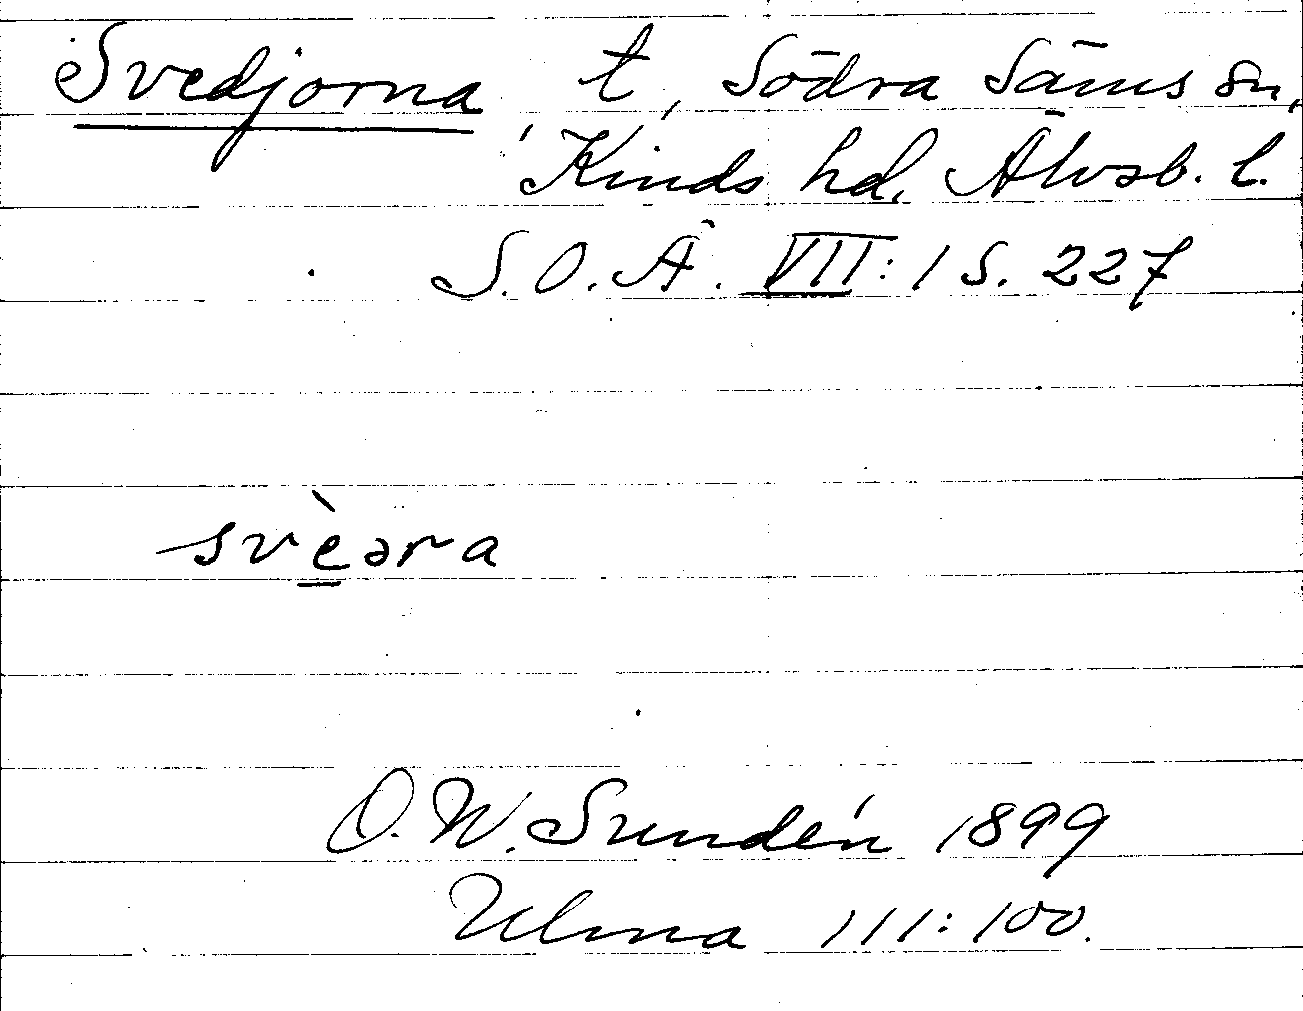 Svedjorna t, Södra Säms sn,
Kinds hd, Älvsb. l.
S. O. Ä. VII: 1 S. 227
svèəra
O. W. Sundén 1899
Ulma 111:100.